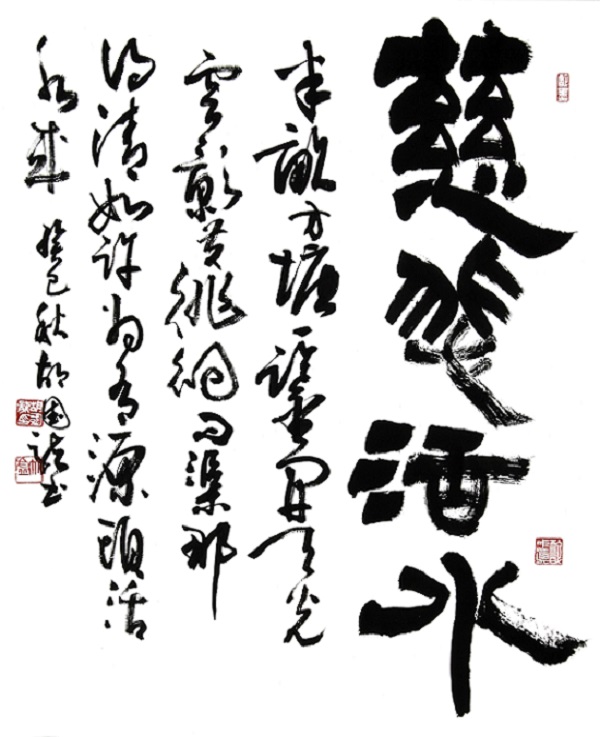 慈悲活水
半畝方塘一鑒開天光
雲影共徘徊問渠那
得清如許為有源頭活
水來 癸巳秋胡國書